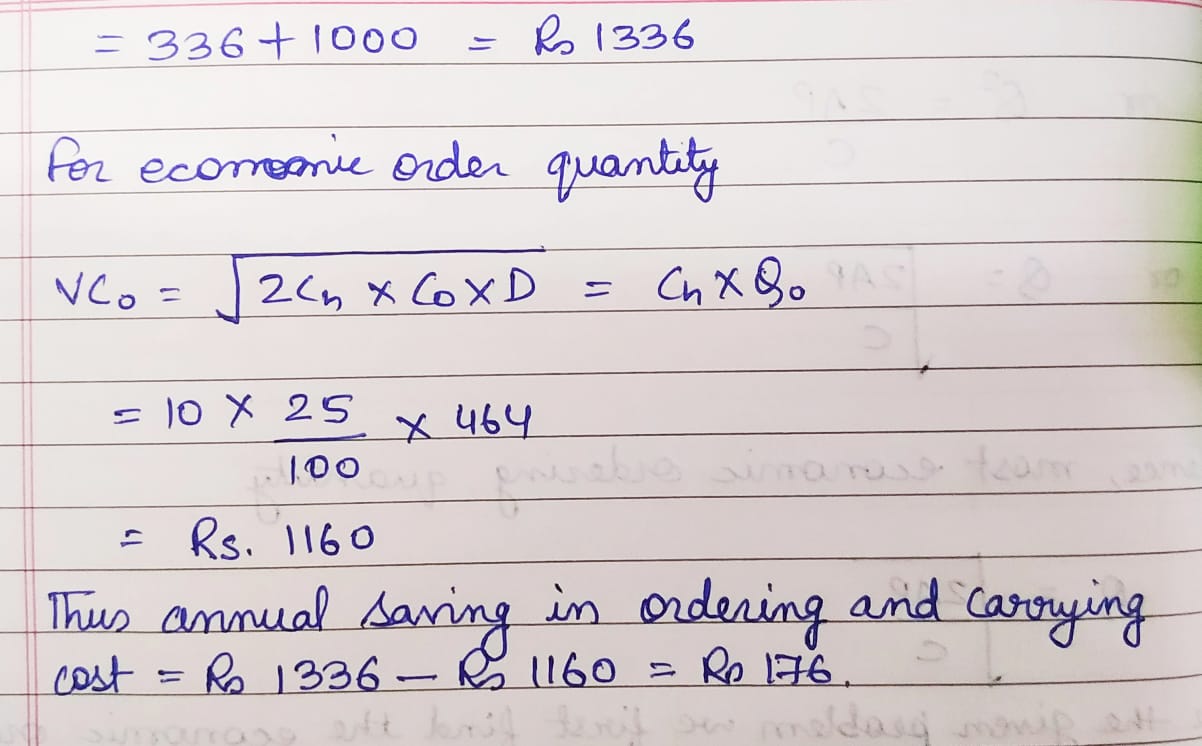 = 336 + 1000 = Rs 1336
For economic order quantity
VCo = √2Ch × Co × D = Ch × Qo
= 10 × 25/100 × 464
= Rs. 1160
Thus annual saving in ordering and carrying
cost = Rs 1336 – Rs 1160 = Rs 176.